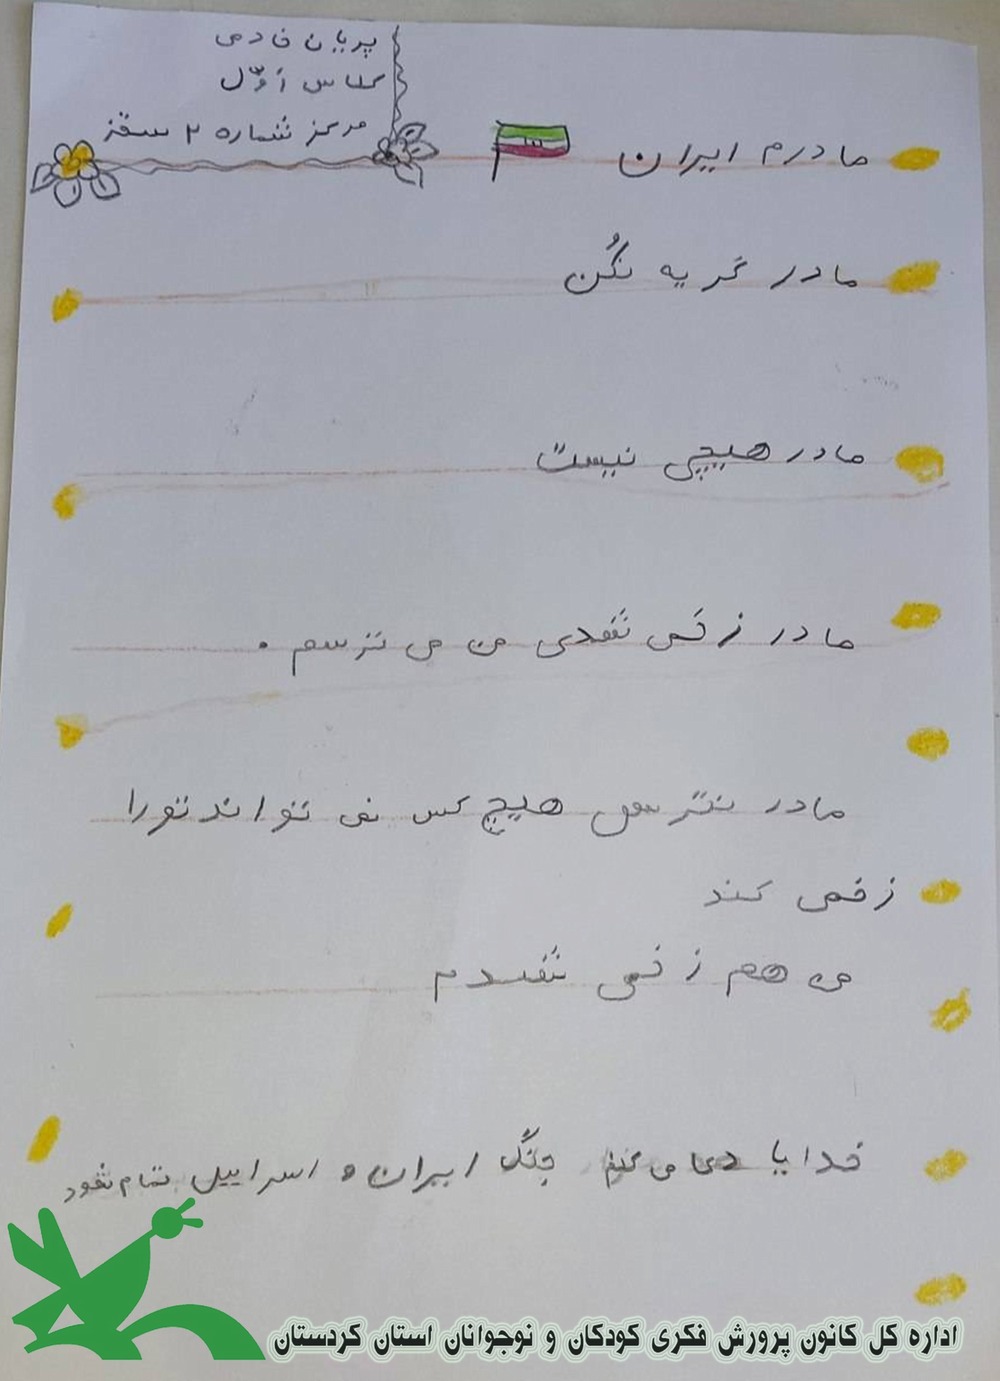 پریان خادمی
کلاس اوّل
مرکز شماره ۲ سقز
مادرم ایران
مادر گریه نکُن
مادر هیچی نیست
مادر زخمی شدی من می ترسم .
مادر نترس هیچ کس نمی تواند تو را
زخمی کند
من هم زخمی شدم
خدایا دعا می کنم جنگ ایران و اسراییل تمام شود
اداره کل کانون پرورش فکری کودکان و نوجوانان استان کردستان